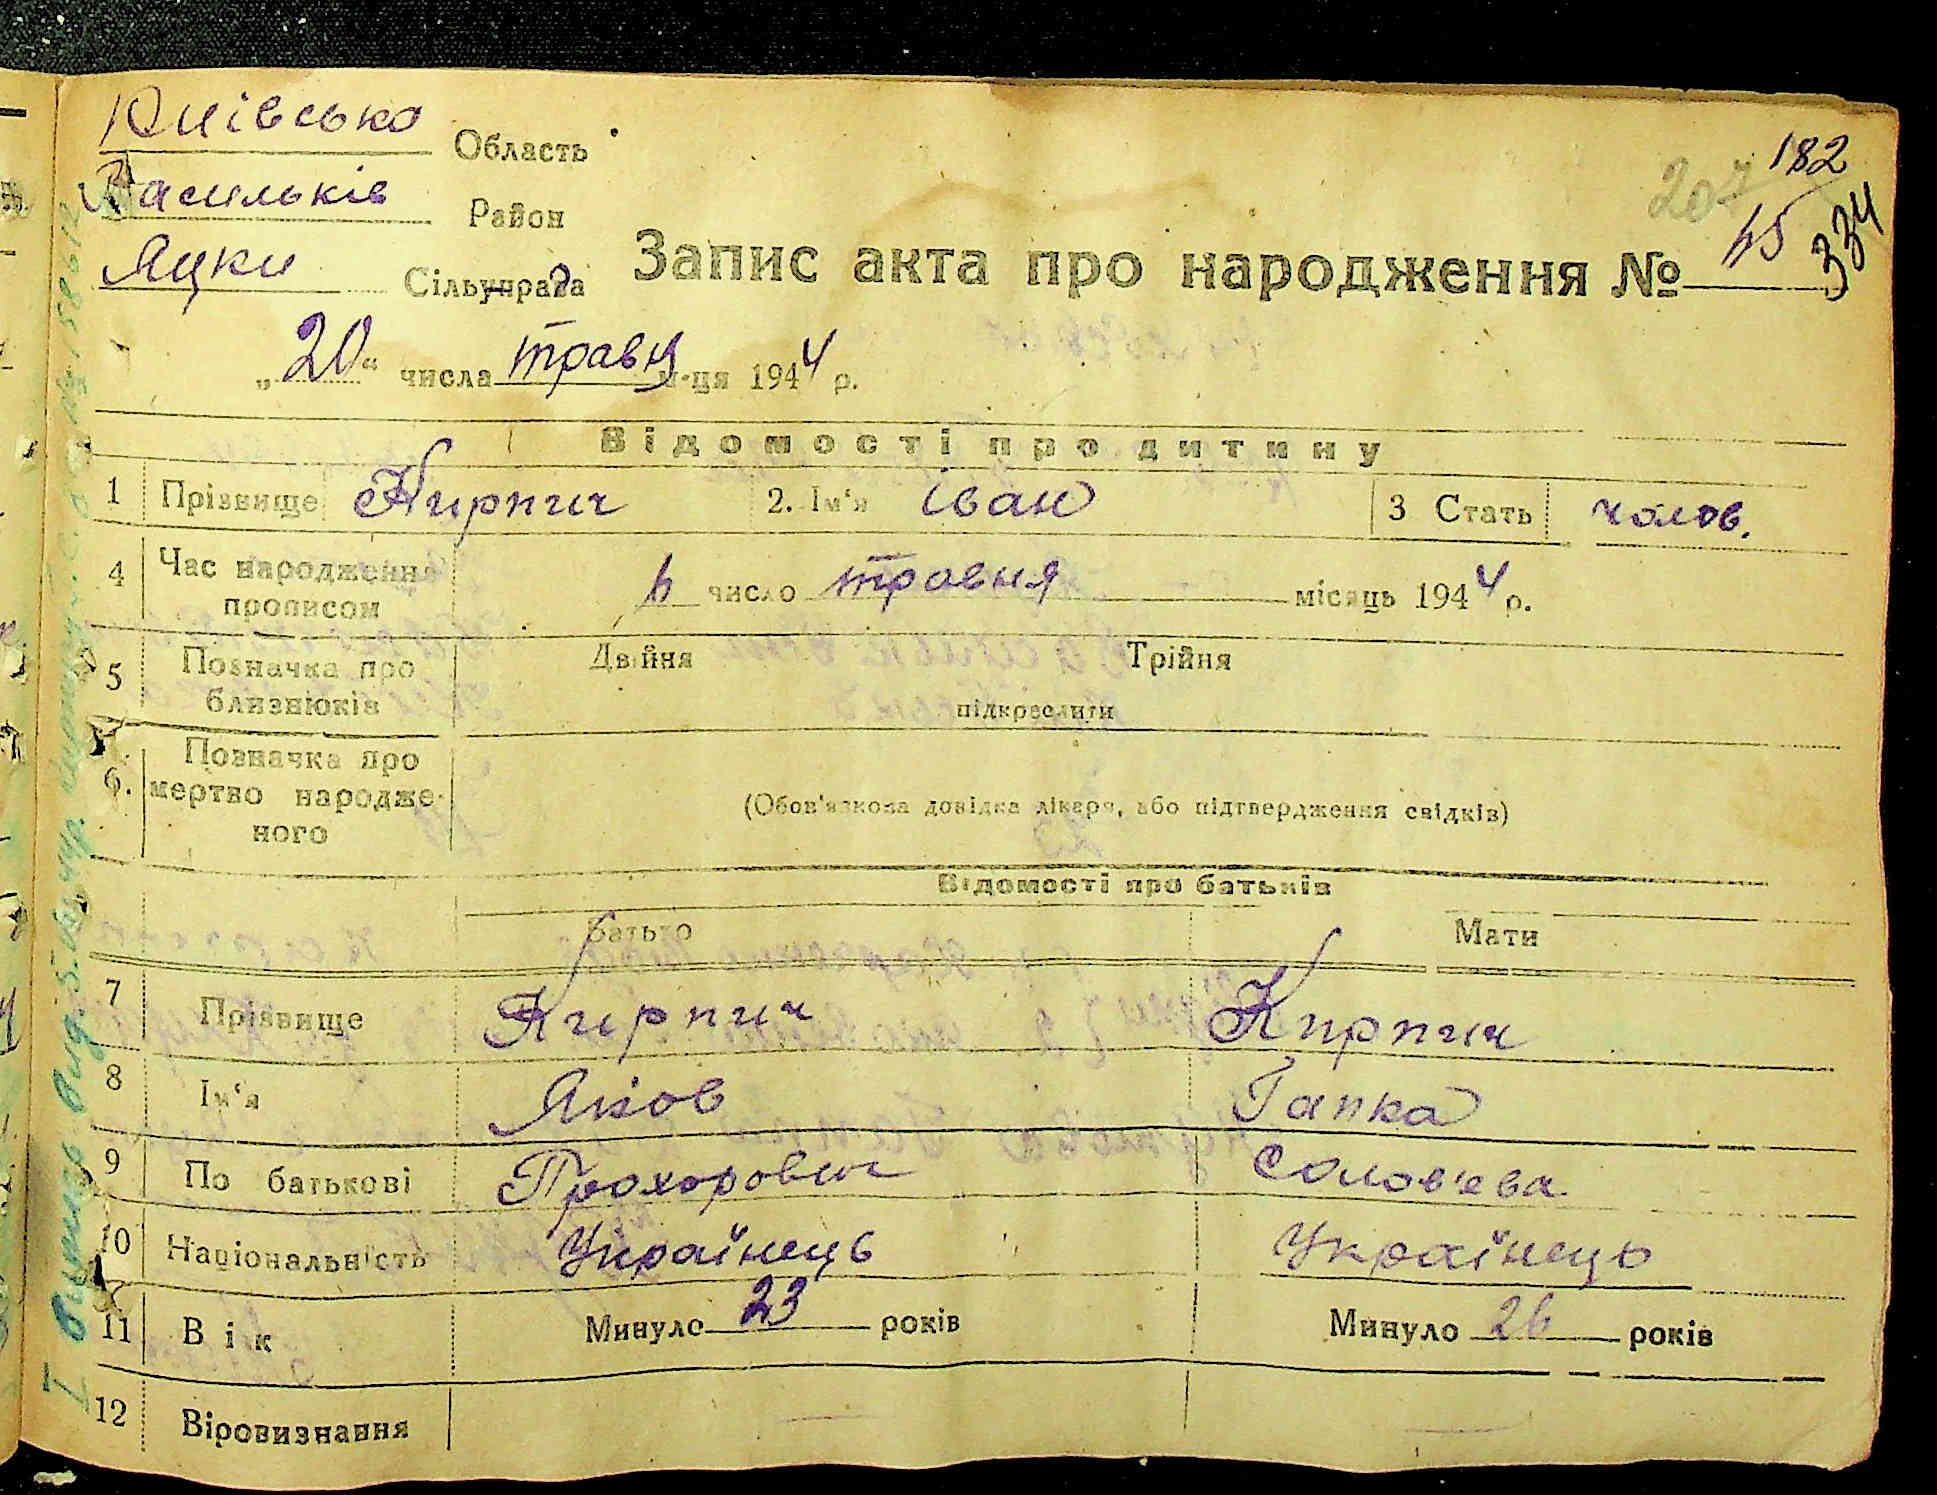 Київська Область
Васильків Район
Яцки Сільуправа
207 182
45 334
Запис акта про народження №
„20“ числа травня м-ця 1944 р.
Відомості про дитину
1 Прізвище Кирпич 2. Ім'я Іван 3 Стать чолов.
4 Час народження прописом 6 число травня місяць 1944 р.
5 Позначка про близнюків Двійня Трійня
підкреслити
6. Позначка про мертво народженого (Обов'язкова довідка лікаря, або підтвердження свідків)
Відомості про батьків
Батько Мати
7 Прізвище Кирпич Кирпич
8 Ім'я Яков Гапка
9 По батькові Прохорович Солов'ева
10 Національність Українець Українець
11 Вік Минуло 23 років Минуло 26 років
12 Віровизнання — —